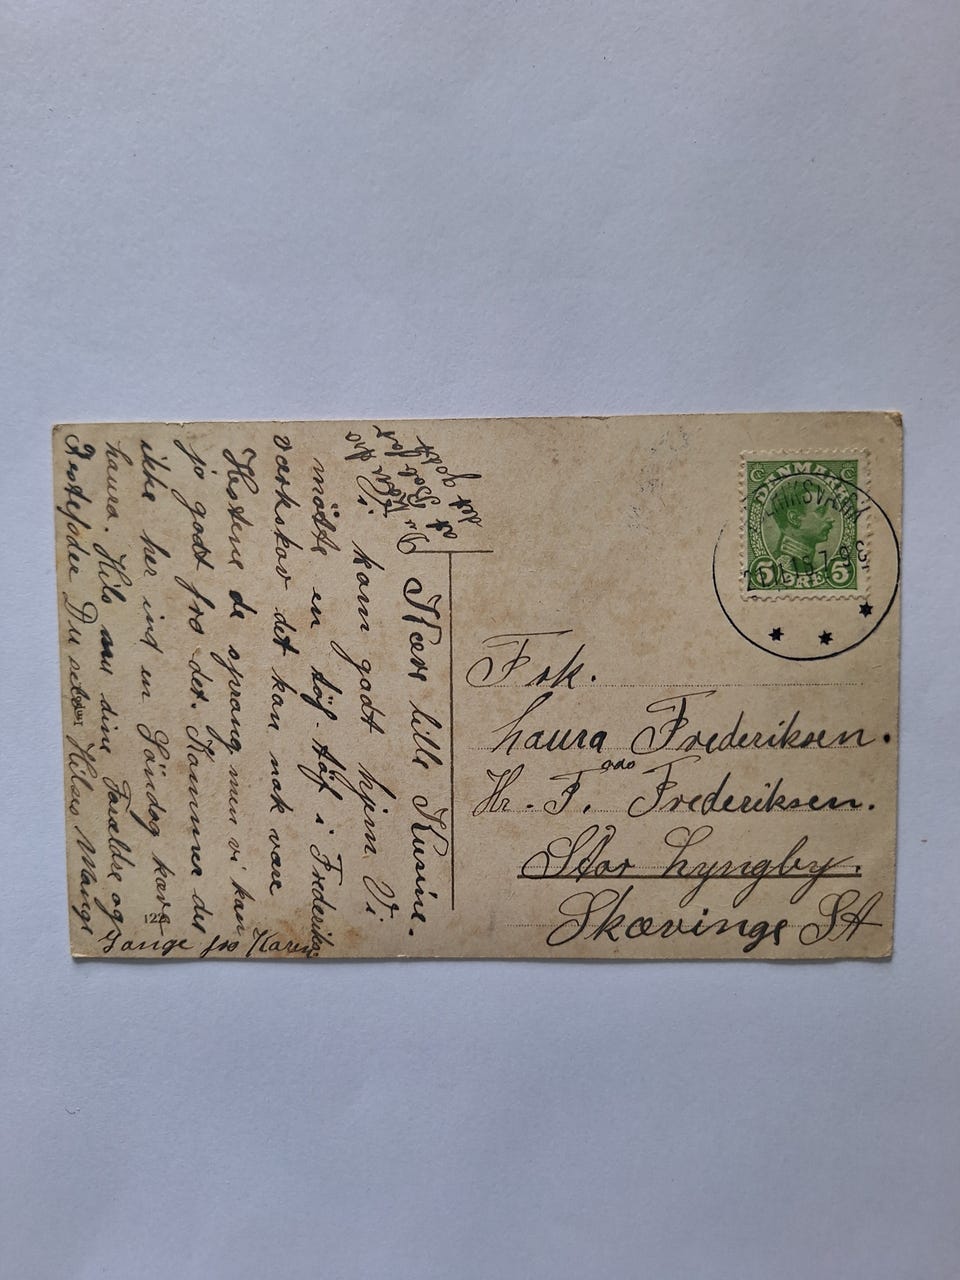 Kære lille Kusine.
kom godt hjem. Vi
mødte en tøj-tøj i Frederiks
værkskov det kan nok være
Hestene de sprang men vi kan
jo godt fra det. Kommer du
ikke her ind en Søndag kære
Laura. Hils nu dine Forældre og
Bestefader Du selv Hilses Mange
Gange fra Karen
122
DANMARK
5 ØRE 5
Frk.
Laura Frederiksen.
adr
Hr. F. Frederiksen.
Stor Lyngby.
Skævinge St